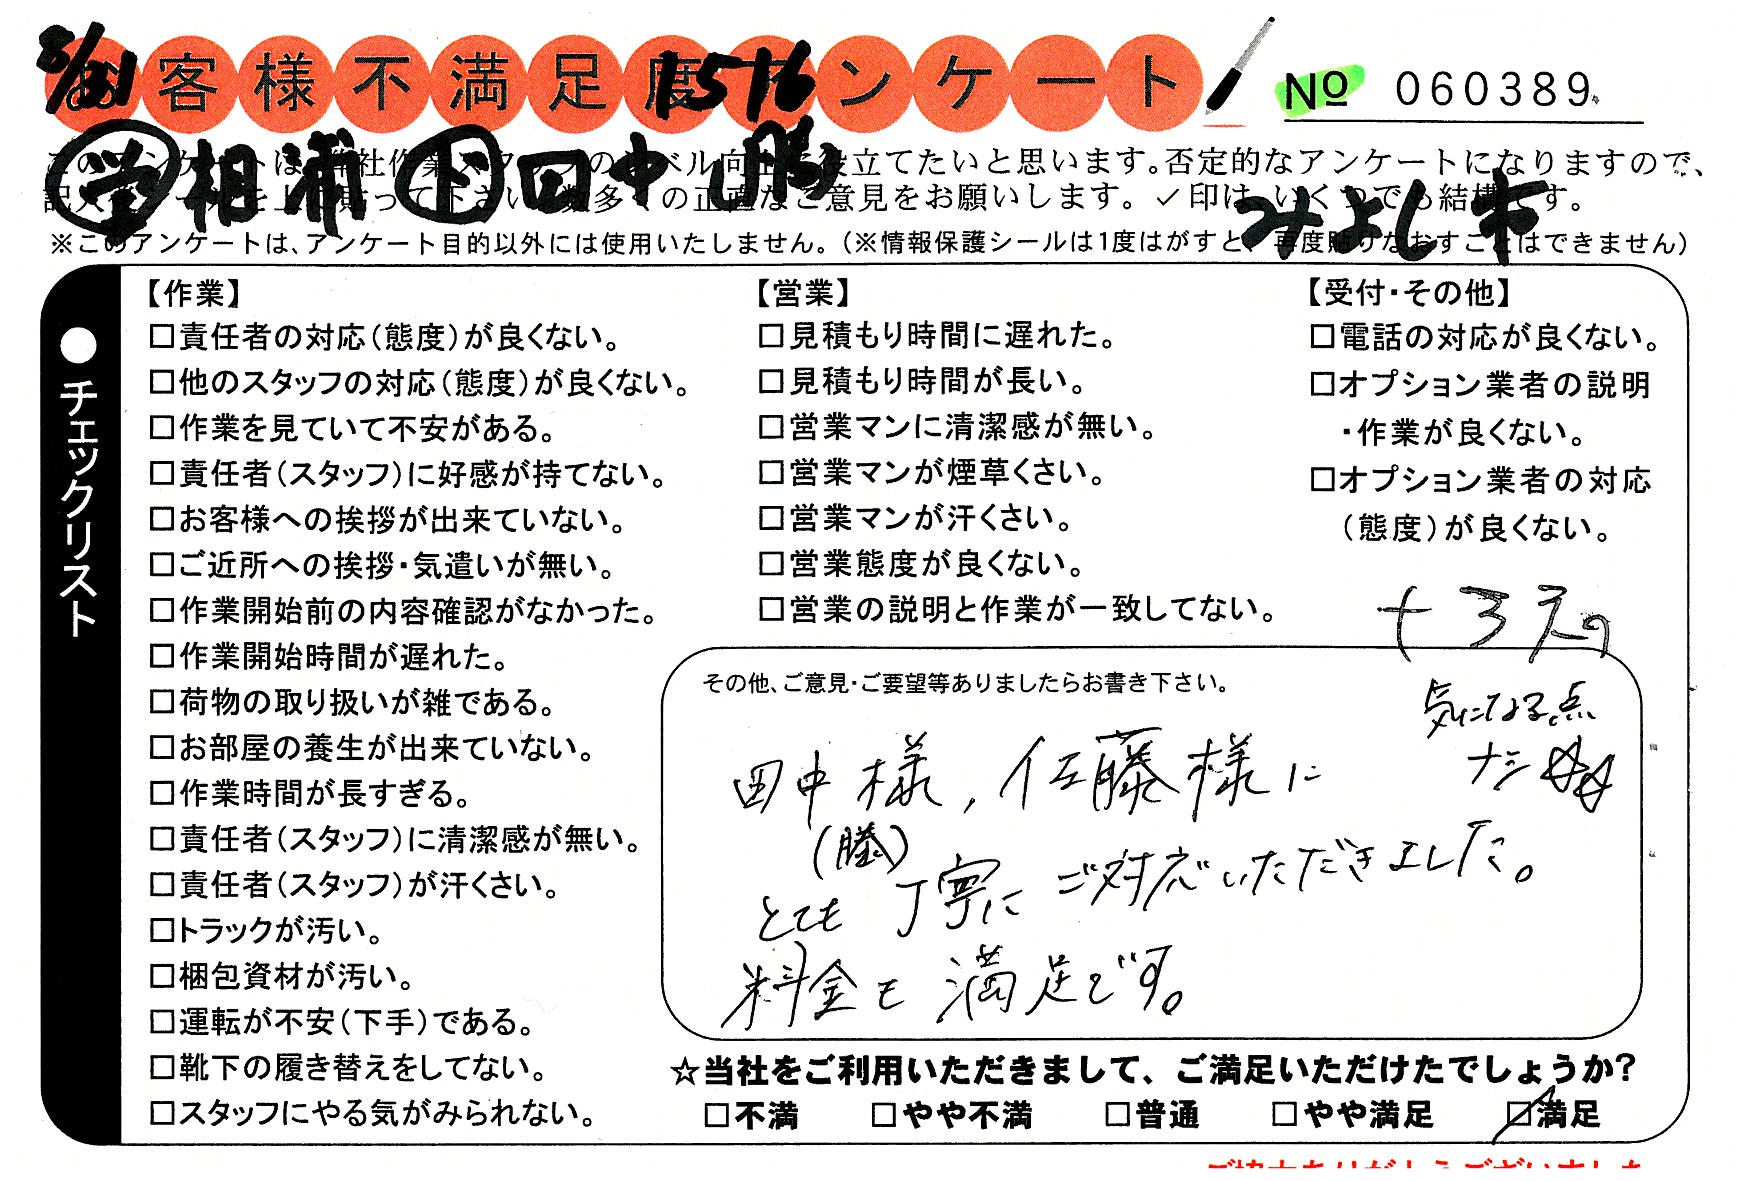 5/31
お客様不満足度アンケート
1576
No 060389
営 相浦 下 田中 勝
みよし市
このアンケートは、弊社作業スタッフのレベル向上に役立てたいと思います。否定的なアンケートになりますので、
記入後シールを上に貼って下さい。数多くの正直なご意見をお願いします。✓印は、いくつでも結構です。
※このアンケートは、アンケート目的以外には使用いたしません。（※情報保護シールは1度はがすと、再度貼りなおすことはできません）
●チェックリスト
【作業】
□責任者の対応（態度）が良くない。
□他のスタッフの対応（態度）が良くない。
□作業を見ていて不安がある。
□責任者（スタッフ）に好感が持てない。
□お客様への挨拶が出来ていない。
□ご近所への挨拶・気遣いが無い。
□作業開始前の内容確認がなかった。
□作業開始時間が遅れた。
□荷物の取り扱いが雑である。
□お部屋の養生が出来ていない。
□作業時間が長すぎる。
□責任者（スタッフ）に清潔感が無い。
□責任者（スタッフ）が汗くさい。
□トラックが汚い。
□梱包資材が汚い。
□運転が不安（下手）である。
□靴下の履き替えをしてない。
□スタッフにやる気がみられない。
【営業】
□見積もり時間に遅れた。
□見積もり時間が長い。
□営業マンに清潔感が無い。
□営業マンが煙草くさい。
□営業マンが汗くさい。
□営業態度が良くない。
□営業の説明と作業が一致してない。
【受付・その他】
□電話の対応が良くない。
□オプション業者の説明
・作業が良くない。
□オプション業者の対応
（態度）が良くない。
その他、ご意見・ご要望等ありましたらお書き下さい。
気になる点
ナシ☆☆
田中様、佐藤様に
（勝）
とても丁寧にご対応いただきました。
料金も満足です。
☆当社をご利用いただきまして、ご満足いただけたでしょうか？
□不満 □やや不満 □普通 □やや満足 ☑満足
ご協力ありがとうございました